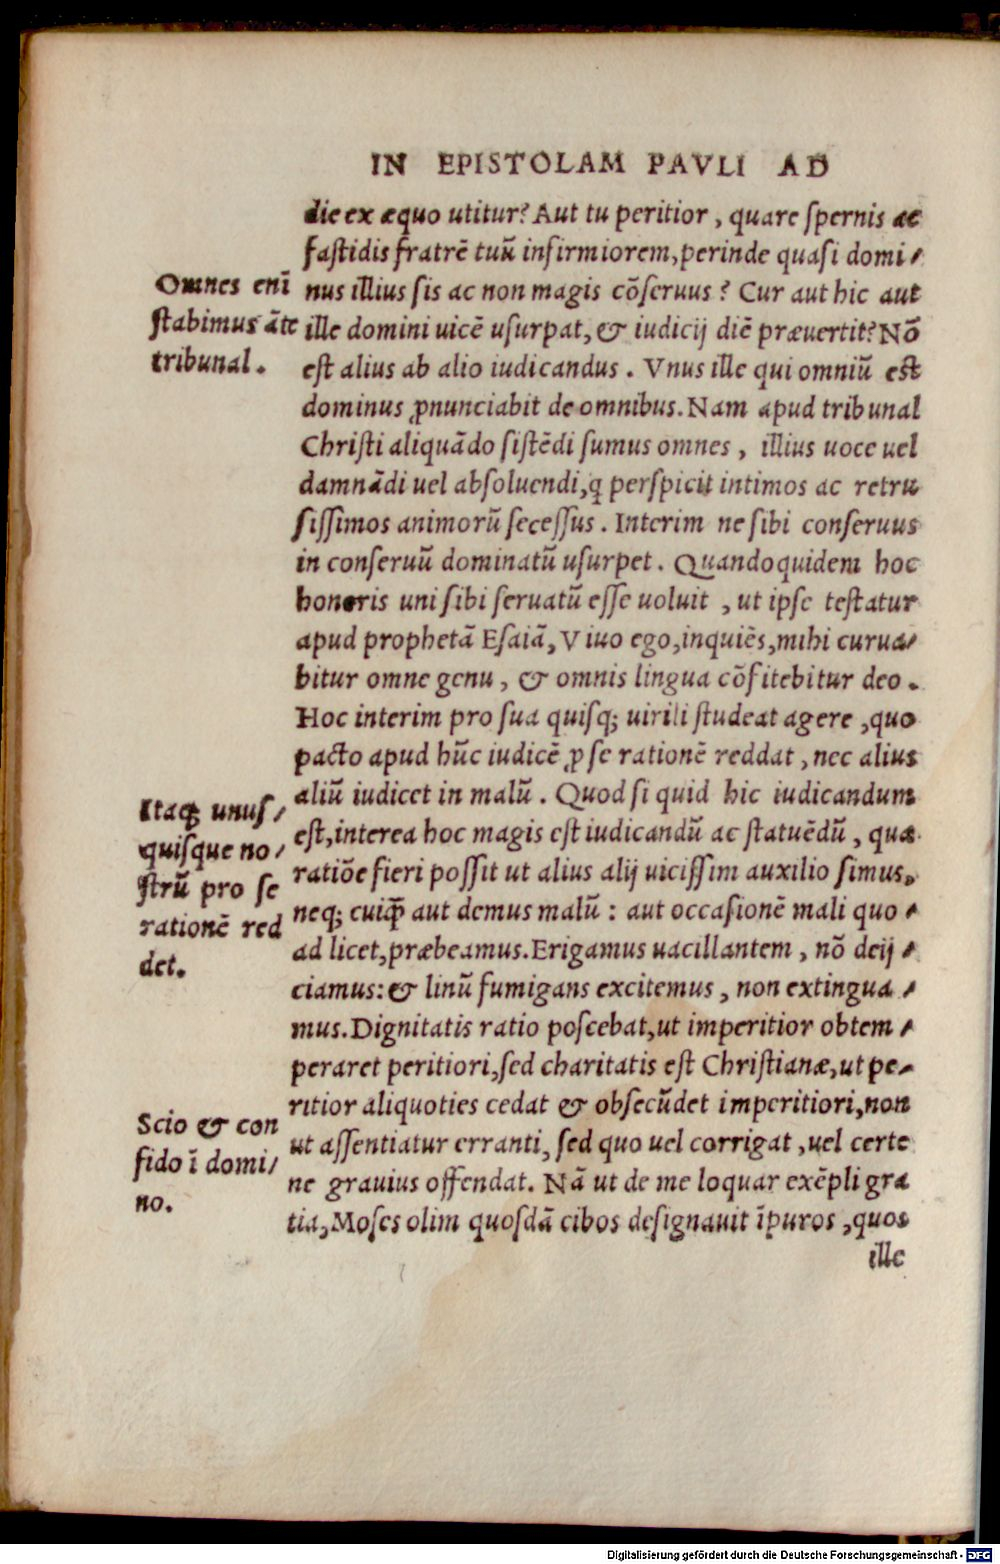 IN EPISTOLAM PAVLI AD
die ex æquo utitur? Aut tu peritior, quare ſpernis ac
faſtidis fratrē tuū infirmiorem, perinde quaſi domi⸗
nus illius ſis ac non magis cōſeruus? Cur aut hic aut
ille domini uicē uſurpat, & iudicij diē præuertit? Nō
eſt alius ab alio iudicandus. Vnus ille qui omniū eſt
dominus ꝓnunciabit de omnibus. Nam apud tribunal
Chriſti aliquādo ſiſtēdi ſumus omnes, illius uoce uel
damnādi uel abſoluendi, q perſpicit intimos ac retru
ſiſſimos animorū ſeceſſus. Interim ne ſibi conſeruus
in conſeruū dominatū uſurpet. Quandoquidem hoc
honoris uni ſibi ſeruatū eſſe uoluit, ut ipſe teſtatur
apud prophetā Eſaiā, Viuo ego, inquiēs, mihi curua⸗
bitur omne genu, & omnis lingua cōfitebitur deo.
Hoc interim pro ſua quiſq; uirili ſtudeat agere, quo
pacto apud hūc iudicē ꝓ ſe rationē reddat, nec alius
aliū iudicet in malū. Quod ſi quid hic iudicandum
eſt, interea hoc magis eſt iudicandū ac ſtatuēdū, qua
ratiōe fieri poſſit ut alius alij uiciſſim auxilio ſimus,
neq; cuiꝗ̄ aut demus malū: aut occaſionē mali quo⸗
ad licet, præbeamus. Erigamus uacillantem, nō deij⸗
ciamus: & linū fumigans excitemus, non extingua⸗
mus. Dignitatis ratio poſcebat, ut imperitior obtem⸗
peraret peritiori, ſed charitatis eſt Chriſtianæ, ut pe⸗
ritior aliquoties cedat & obſecūdet imperitiori, non
ut aſſentiatur erranti, ſed quo uel corrigat, uel certe
ne grauius offendat. Nā ut de me loquar exēpli gra
tia, Moſes olim quoſdā cibos deſignauit īpuros, quos
ille
Omnes enī
ſtabimus āte
tribunal.
Itaq; unuſ⸗
quiſque no⸗
ſtrū pro ſe
rationē red
det.
Scio & con
fido ī domi⸗
no.
Digitalisierung gefördert durch die Deutsche Forschungsgemeinschaft - DFG